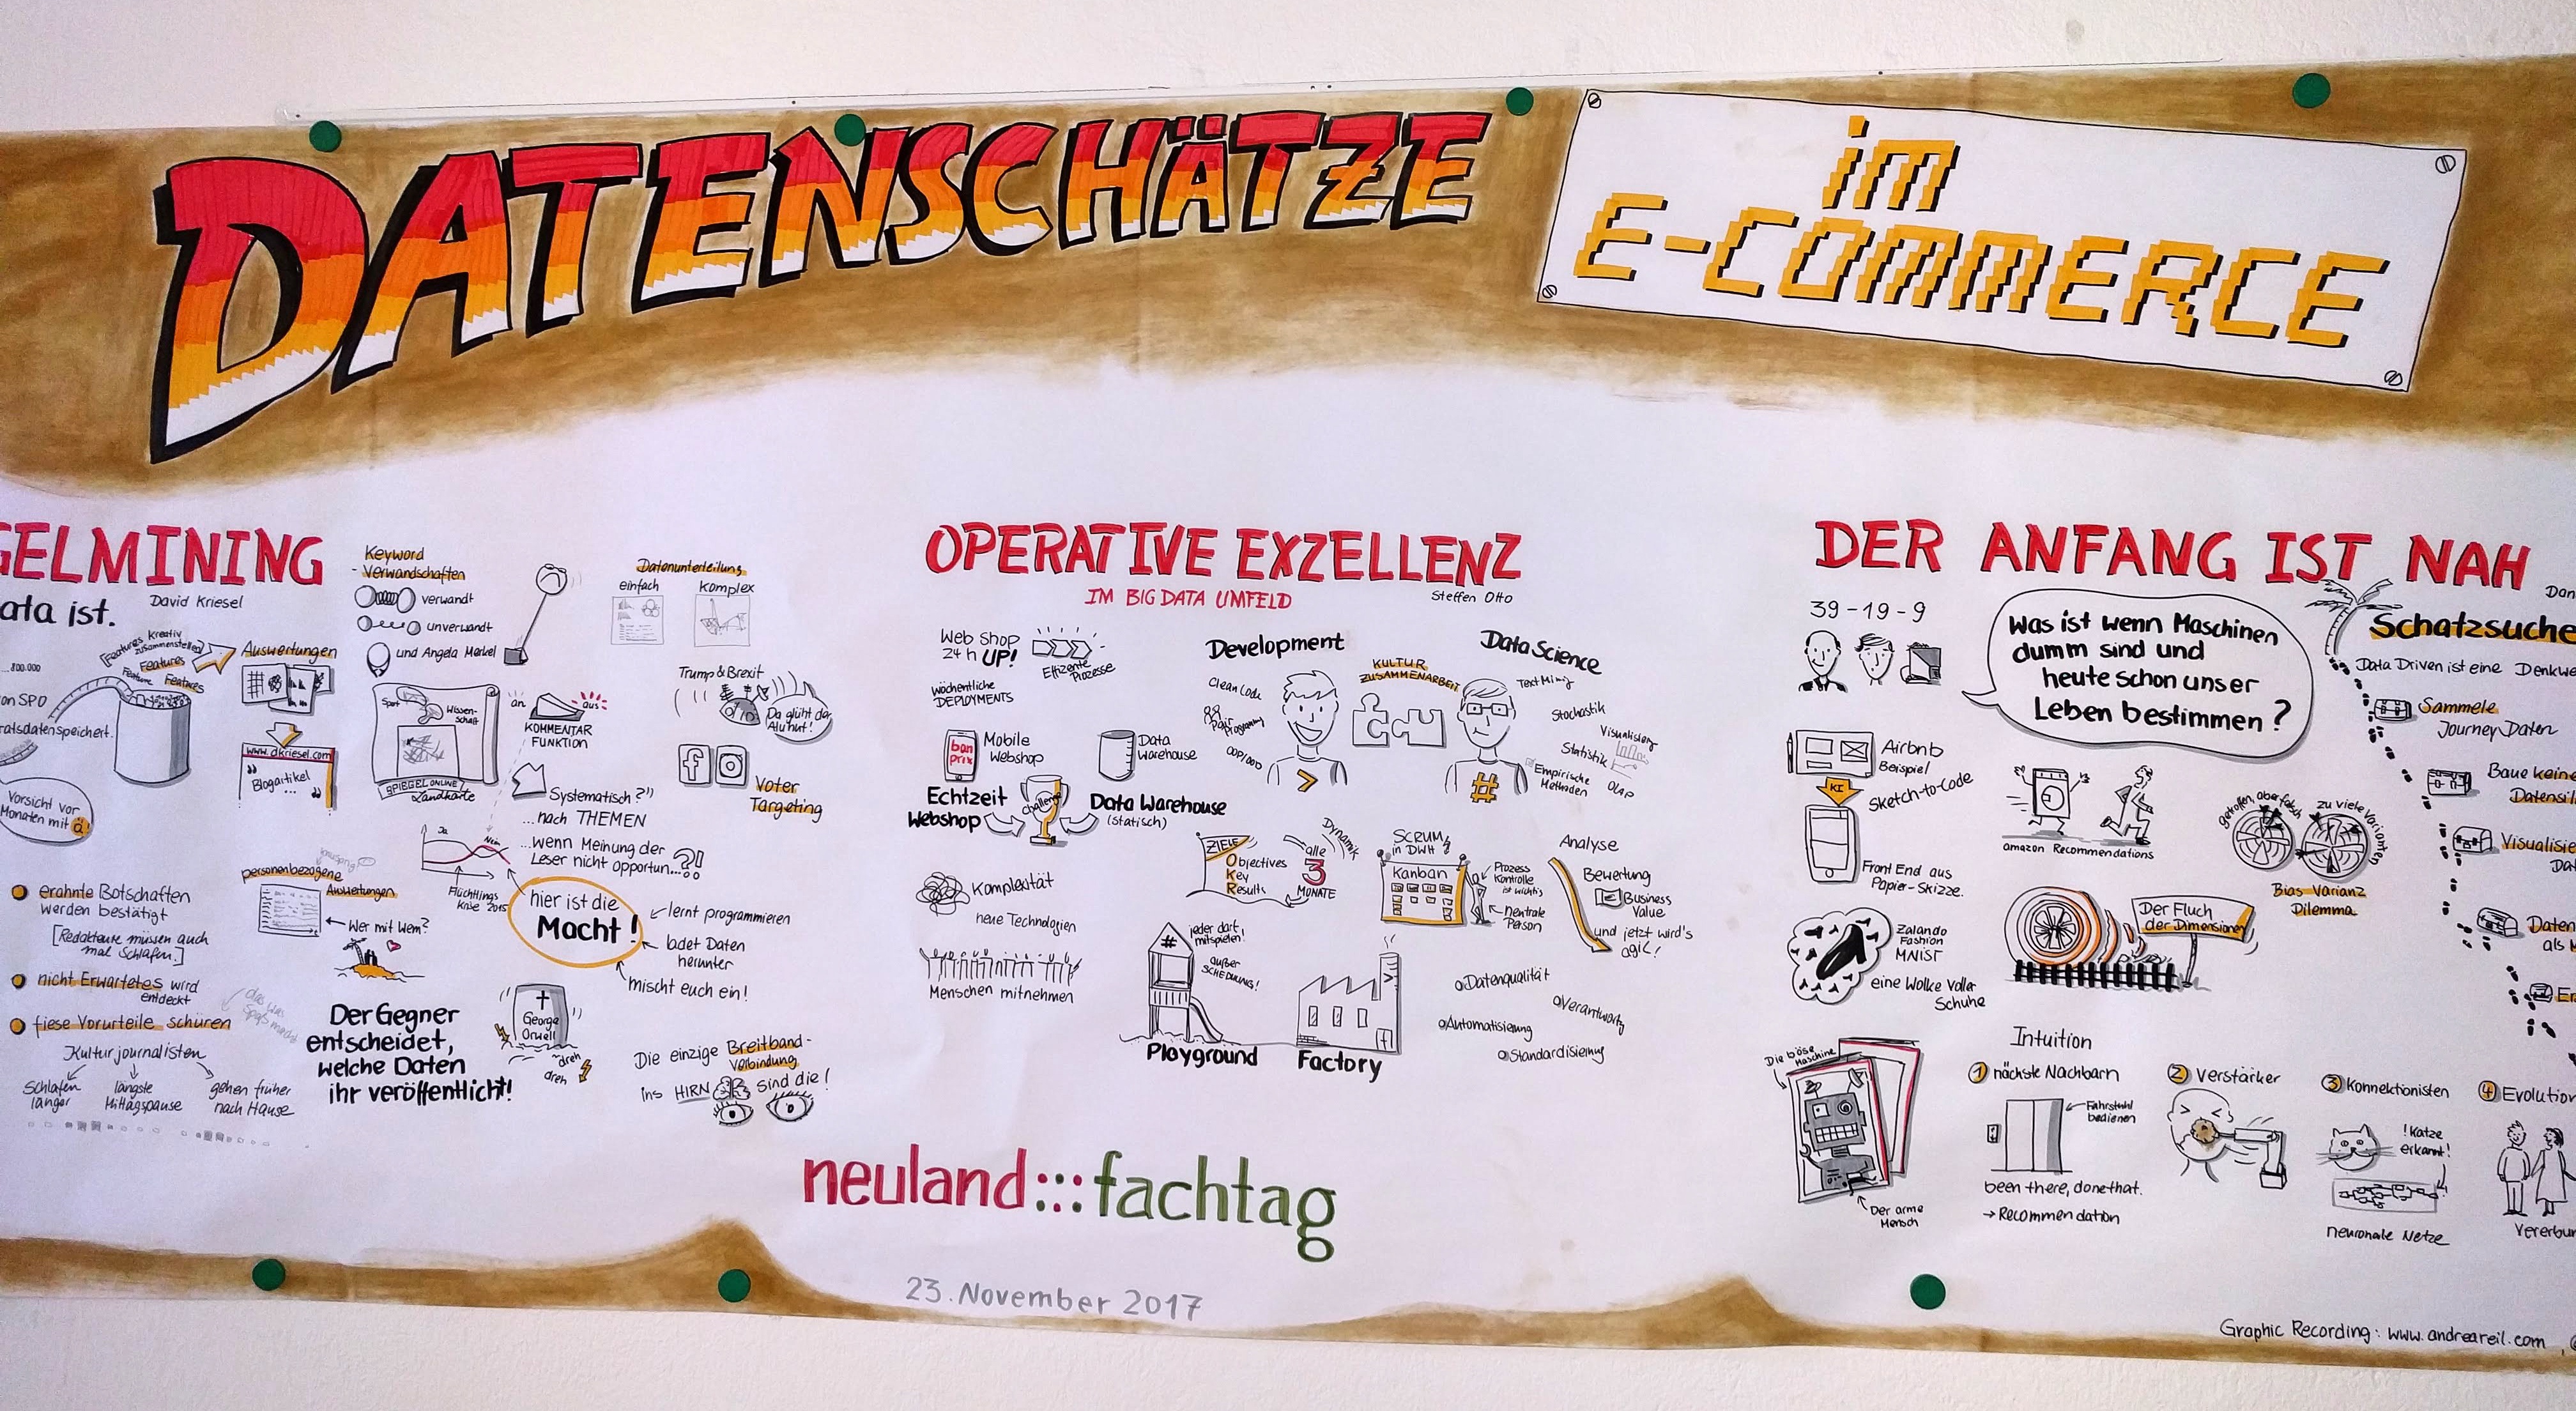 DATENSCHÄTZE
im
E-COMMERCE
GELMINING
ata ist.
David Kriesel
...800.000
on SPO
ratsdatenspeichert.
Vorsicht vor
Monaten mit ä!
Features kreativ
zusammenstellen
Features
Feature
Features
Auswertungen
www.dkriesel.com
" Blogartikel
... "
erahnte Botschaften
werden bestätigt
[Redakteure müssen auch
mal schlafen.]
nicht Erwartetes wird
entdeckt
fiese Vorurteile schüren
das was
Spaß macht
Kulturjournalisten
schlafen
länger
längste
Mittagspause
gehen früher
nach Hause
Keyword
- Verwandschaften
verwandt
unverwandt
und Angela Merkel
Sport
Wissen-
schaft
SPIEGEL ONLINE
Landkarte
an
aus
KOMMENTAR
FUNKTION
Systematisch?"
...nach THEMEN
...wenn Meinung der
Leser nicht opportun...?!
Ja
Nein
Flüchtlings
krise 2015
personenbezogene
Auswertungen
← Wer mit Wem?
hier ist die
Macht!
← lernt programmieren
← ladet Daten
herunter
mischt euch ein!
Der Gegner
entscheidet,
welche Daten
ihr veröffentlicht!
George
Orwell
dreh
dreh
Datenunterteilung
einfach
komplex
Trump & Brexit
Da glüht der
Aluhut!
Voter
Targeting
Die einzige Breitband-
verbindung
ins HIRN sind die!
OPERATIVE EXZELLENZ
IM BIG DATA UMFELD
Steffen Otto
Web Shop
24 h UP!
Effiziente
Prozesse
wöchentliche
DEPLOYMENTS
bon
prix
Mobile
Webshop
Data
Warehouse
Echtzeit
Webshop
Challenge
Data Warehouse
(statisch)
Komplexität
neue Technologien
Menschen mitnehmen
Development
Clean Code
Pair
Programming
OOP/OOD
KULTUR
ZUSAMMENARBEIT
>
#
Data Science
Text Mining
Stochastik
Visualisierung
Statistik
Empirische
Methoden
OLAP
ZIELE
Objectives
Key
Results
alle
3
MONATE
Dynamik
SCRUM
in DWH
Kanban
Prozess
Kontrolle
ist wichtig
← neutrale
Person
Analyse
Bewertung
Business
Value
und jetzt wird's
agil!
jeder darf
mitspielen!
außer
SCHEDULING!
#
Playground
Factory
Datenqualität
Verantwortg
Automatisierung
Standardisierung
neuland:::fachtag
23. November 2017
DER ANFANG IST NAH
39-19-9
Was ist wenn Maschinen
dumm sind und
heute schon unser
Leben bestimmen?
Airbnb
Beispiel
KI
Sketch-to-Code
Front End aus
Papier-Skizze.
Zalando
Fashion
MNIST
eine Wolke voller
Schuhe
amazon Recommendations
getroffen, aber falsch
zu viele Varianten
Bias Varianz
Dilemma
Der Fluch
der Dimensionen
Die böse
Maschine
Der arme
Mensch
Intuition
1 nächste Nachbarn
← Fahrstuhl
bedienen
been there, done that.
→ Recommendation
2 Verstärker
3 Konnektionisten
! Katze
erkannt!
neuronale Netze
4 Evolution
Vererbun
Dan
Schatzsuche
Data Driven ist eine Denkwe
Sammele
Journey Daten
Baue keine
Datensil
Visualisie
Dat
Daten
als
Er
Graphic Recording: www.andreareil.com